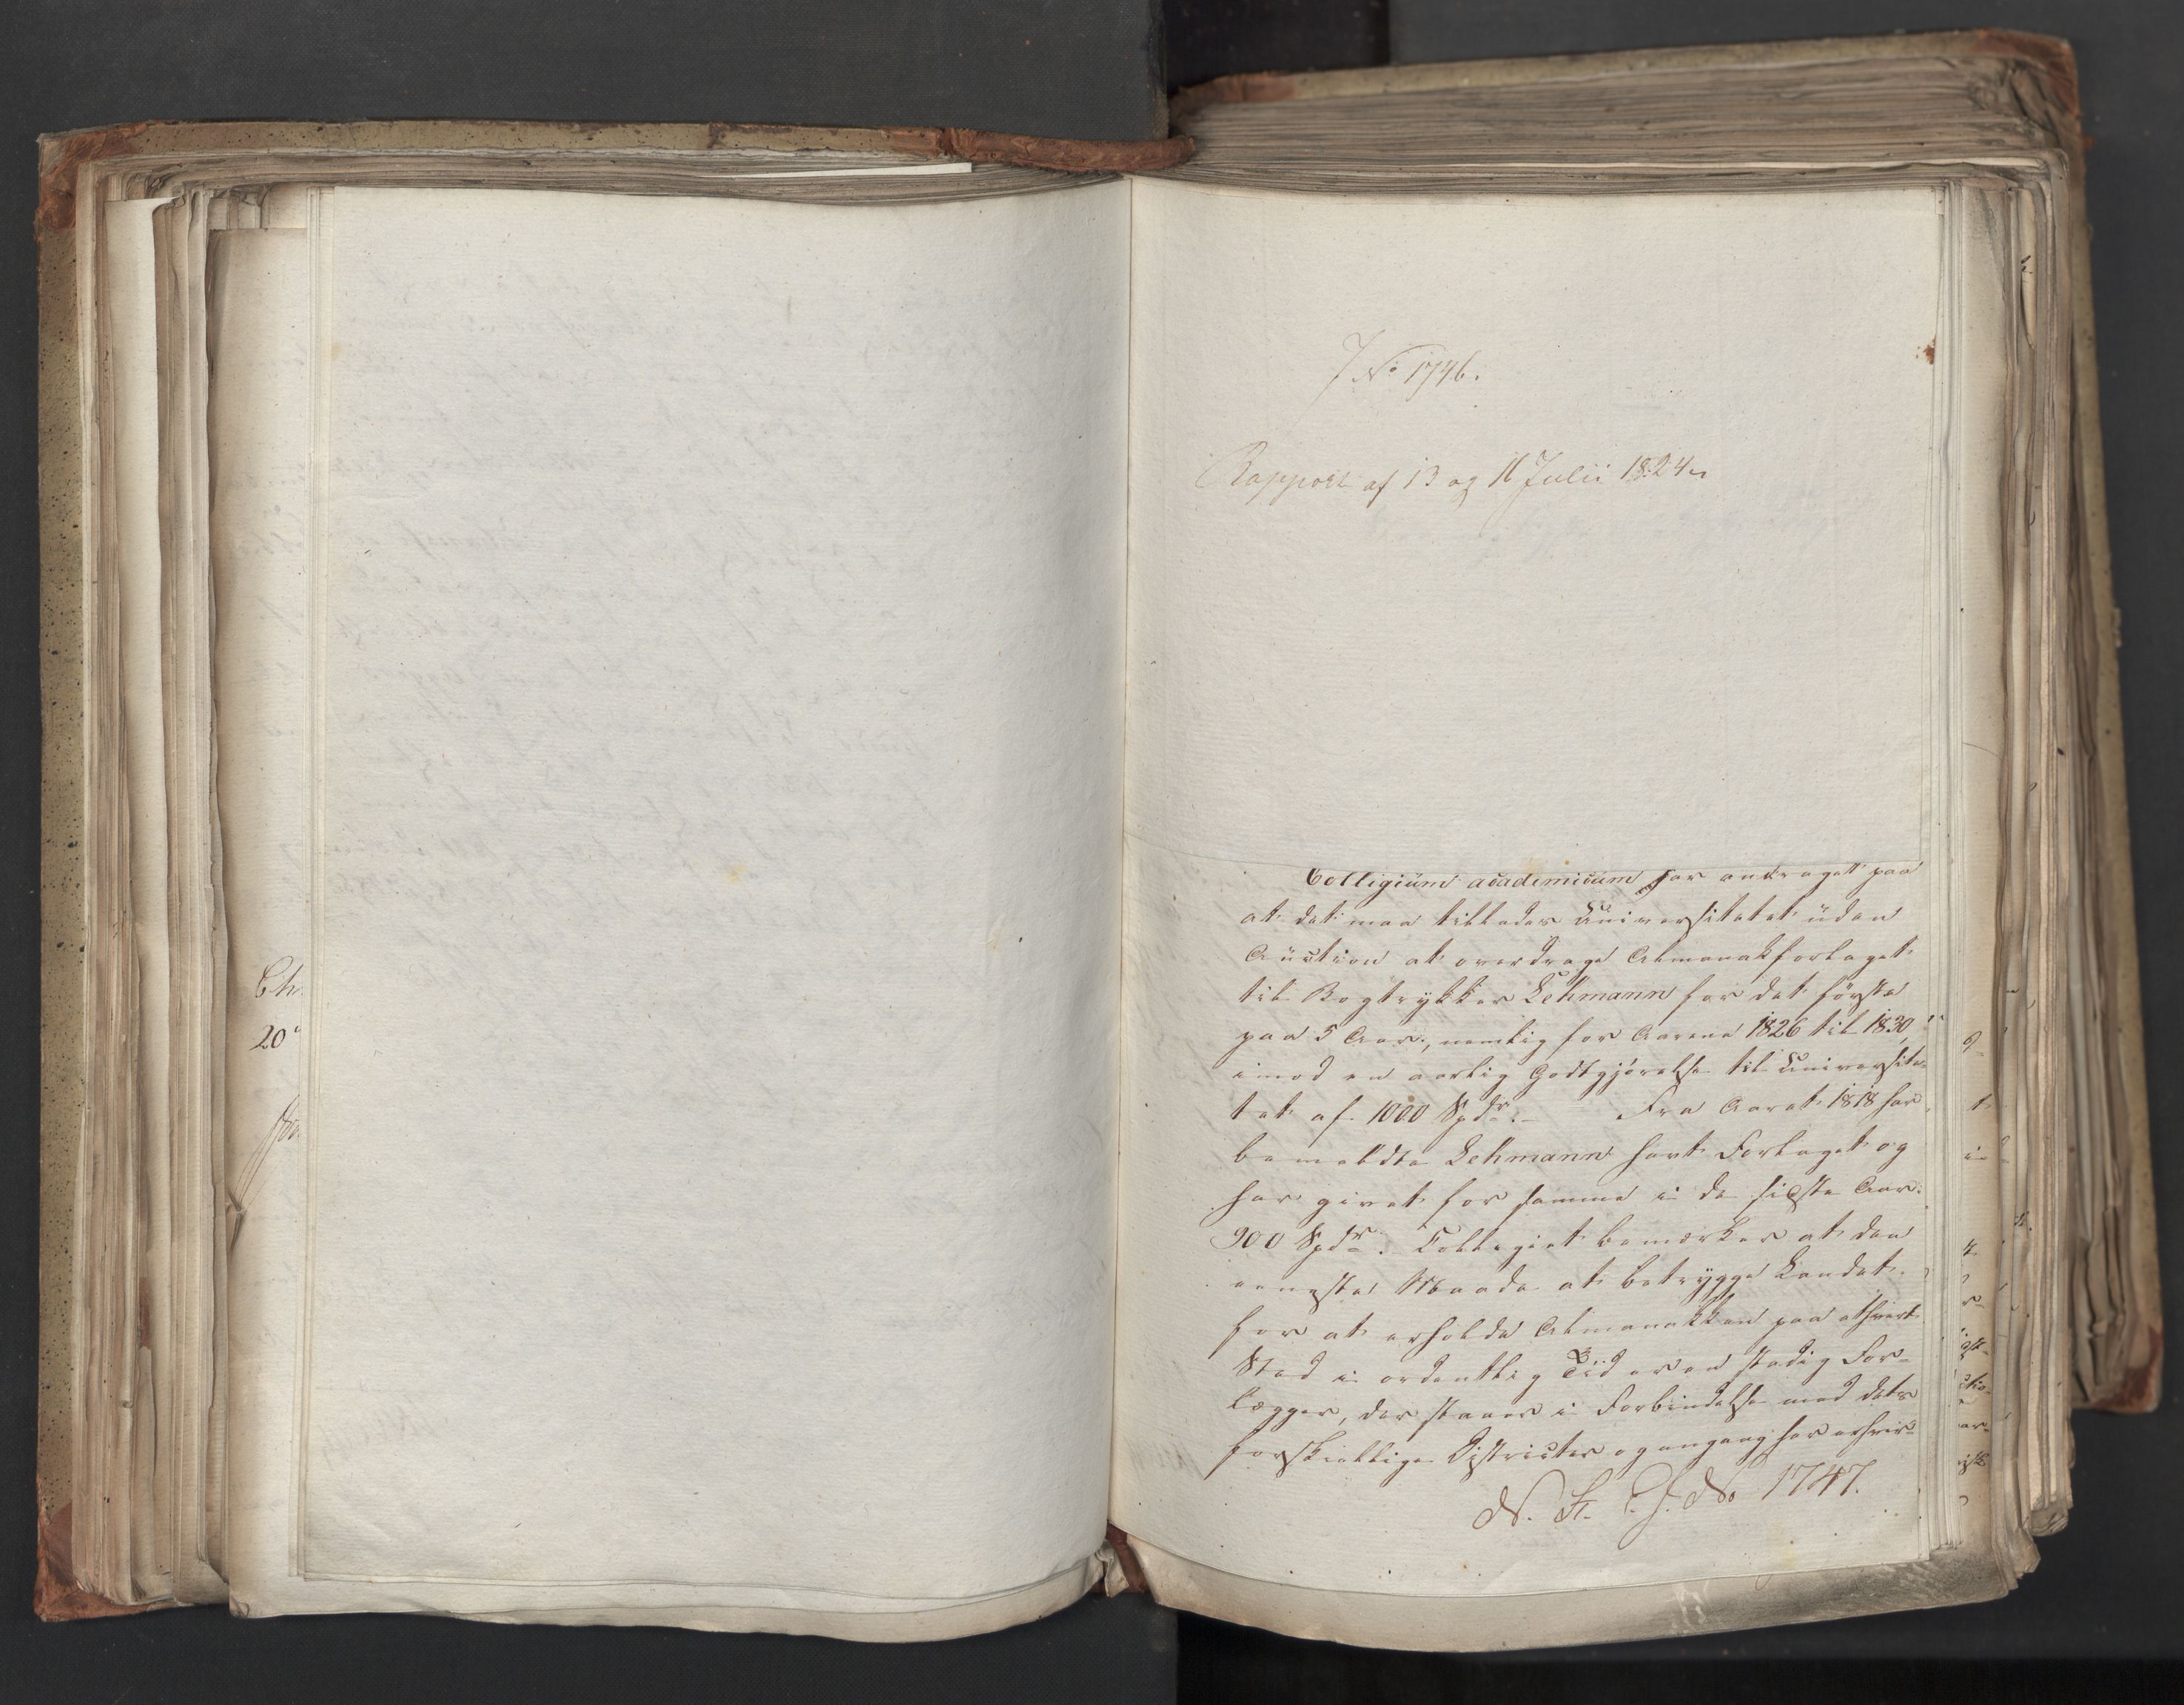 J No 1746.
Rapport af 13 og 16 Julii 1824
Collegium academicum har andraget paa
at det maa tillades Universitetet uden
Auction at overdrage Almanakforlaget
til Bogtrykker Lehmann for det første
paa 5 Aar, nemlig for Aarene 1826 til 1830,
imod en aarlig Godtgjørelse til Universite-
tet af 1000 Spdr. Fra Aaret 1818 har
bemeldte Lehmann havt Forlaget og
har givet for samme i de sidste Aar
900 Spdr. Collegiet bemærker at den
eeneste Maade at betrygge Landet
for at erholde Almanakken paa ethvert
Sted i ordentlig Tid er en stadig For-
lægger, der staaer i Forbindelse med dets
forskiellige Districter og engang har erhver-
J. No 1747.
Ch
20